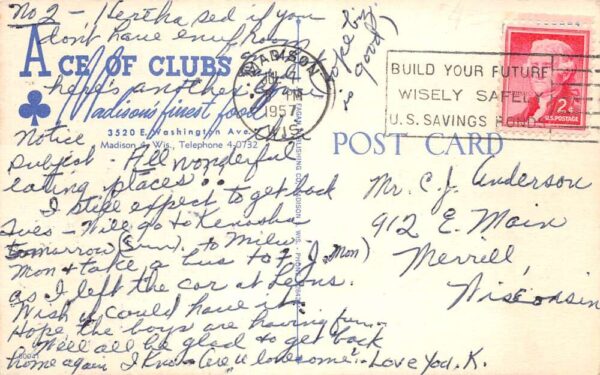 No 2 - Hertha sed if you
dont have enuf room
here's another card
ACE OF CLUBS
Madison's finest food
3520 E. Washington Ave.
Madison 4, Wis., Telephone 4-0732
Notice
Subject - All wonderful
eating places..
I still expect to get back
Tues - Will go to Kenosha
tomorrow (Sun). to Milw.
Mon & take a bus to F J. Mon)
as I left the car at Lens.
Wish I could have it.
Hope the boys are having fun -
We'll all be glad to get back
home again I know. Are u lonesome? - Love You. K.
is good)
MADISON
PM
1957
WIS
BUILD YOUR FUTURE
WISELY SAFELY
U.S. SAVINGS BONDS
2¢
U.S. POSTAGE
POST CARD
Mr. C. J. Anderson
912 E. Main
Merrill,
Wisconsin